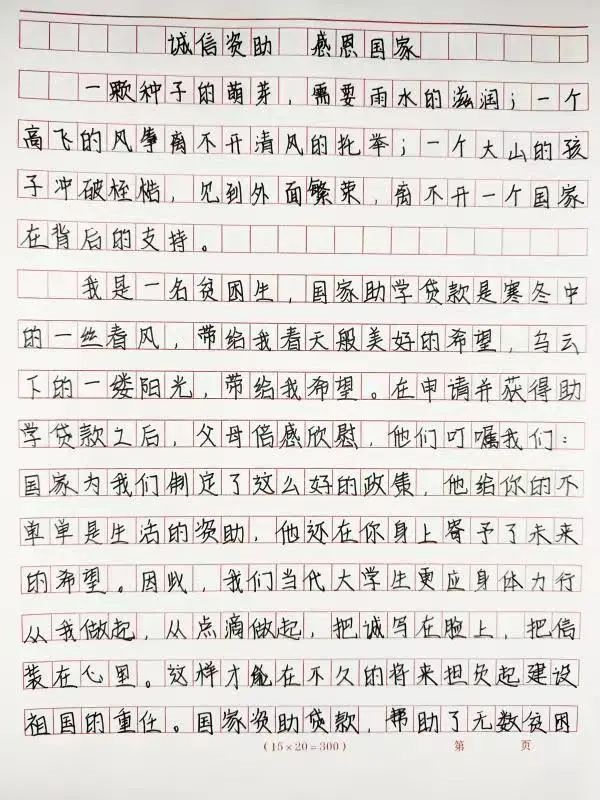 诚信资助 感恩国家
一颗种子的萌芽，需要雨水的滋润；一个
高飞的风筝离不开清风的托举；一个大山的孩
子冲破桎梏，见到外面繁荣，离不开一个国家
在背后的支持。
我是一名贫困生，国家助学贷款是寒冬中
的一丝春风，带给我春天般美好的希望，乌云
下的一缕阳光，带给我希望。在申请并获得助
学贷款之后，父母倍感欣慰，他们叮嘱我们：
国家为我们制定了这么好的政策，他给你的不
单单是生活的资助，他还在你身上寄予了未来
的希望。因此，我们当代大学生更应身体力行
从我做起，从点滴做起，把诚写在脸上，把信
装在心里。这样才能在不久的将来担负起建设
祖国的重任。国家资助贷款，帮助了无数贫困
(15×20=300) 第 页